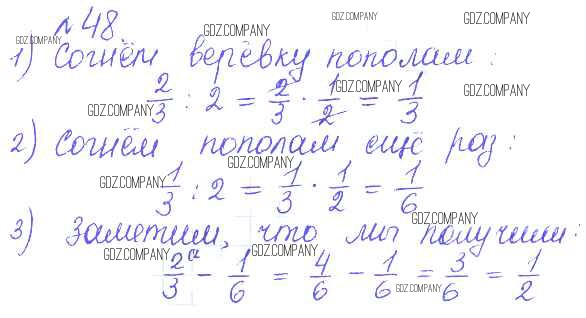 №48
1) Согнём верёвку пополам:
2/3 : 2 = 2/3 · 1/2 = 1/3
2) Согнём пополам ещё раз:
1/3 : 2 = 1/3 · 1/2 = 1/6
3) Заметим, что мы получим:
2/3 - 1/6 = 4/6 - 1/6 = 3/6 = 1/2
GDZ.COMPANY
GDZ.COMPANY
GDZ.COMPANY
GDZ.COMPANY
GDZ.COMPANY
GDZ.COMPANY
GDZ.COMPANY
GDZ.COMPANY
GDZ.COMPANY
GDZ.COMPANY
GDZ.COMPANY
GDZ.COMPANY
GDZ.COMPANY